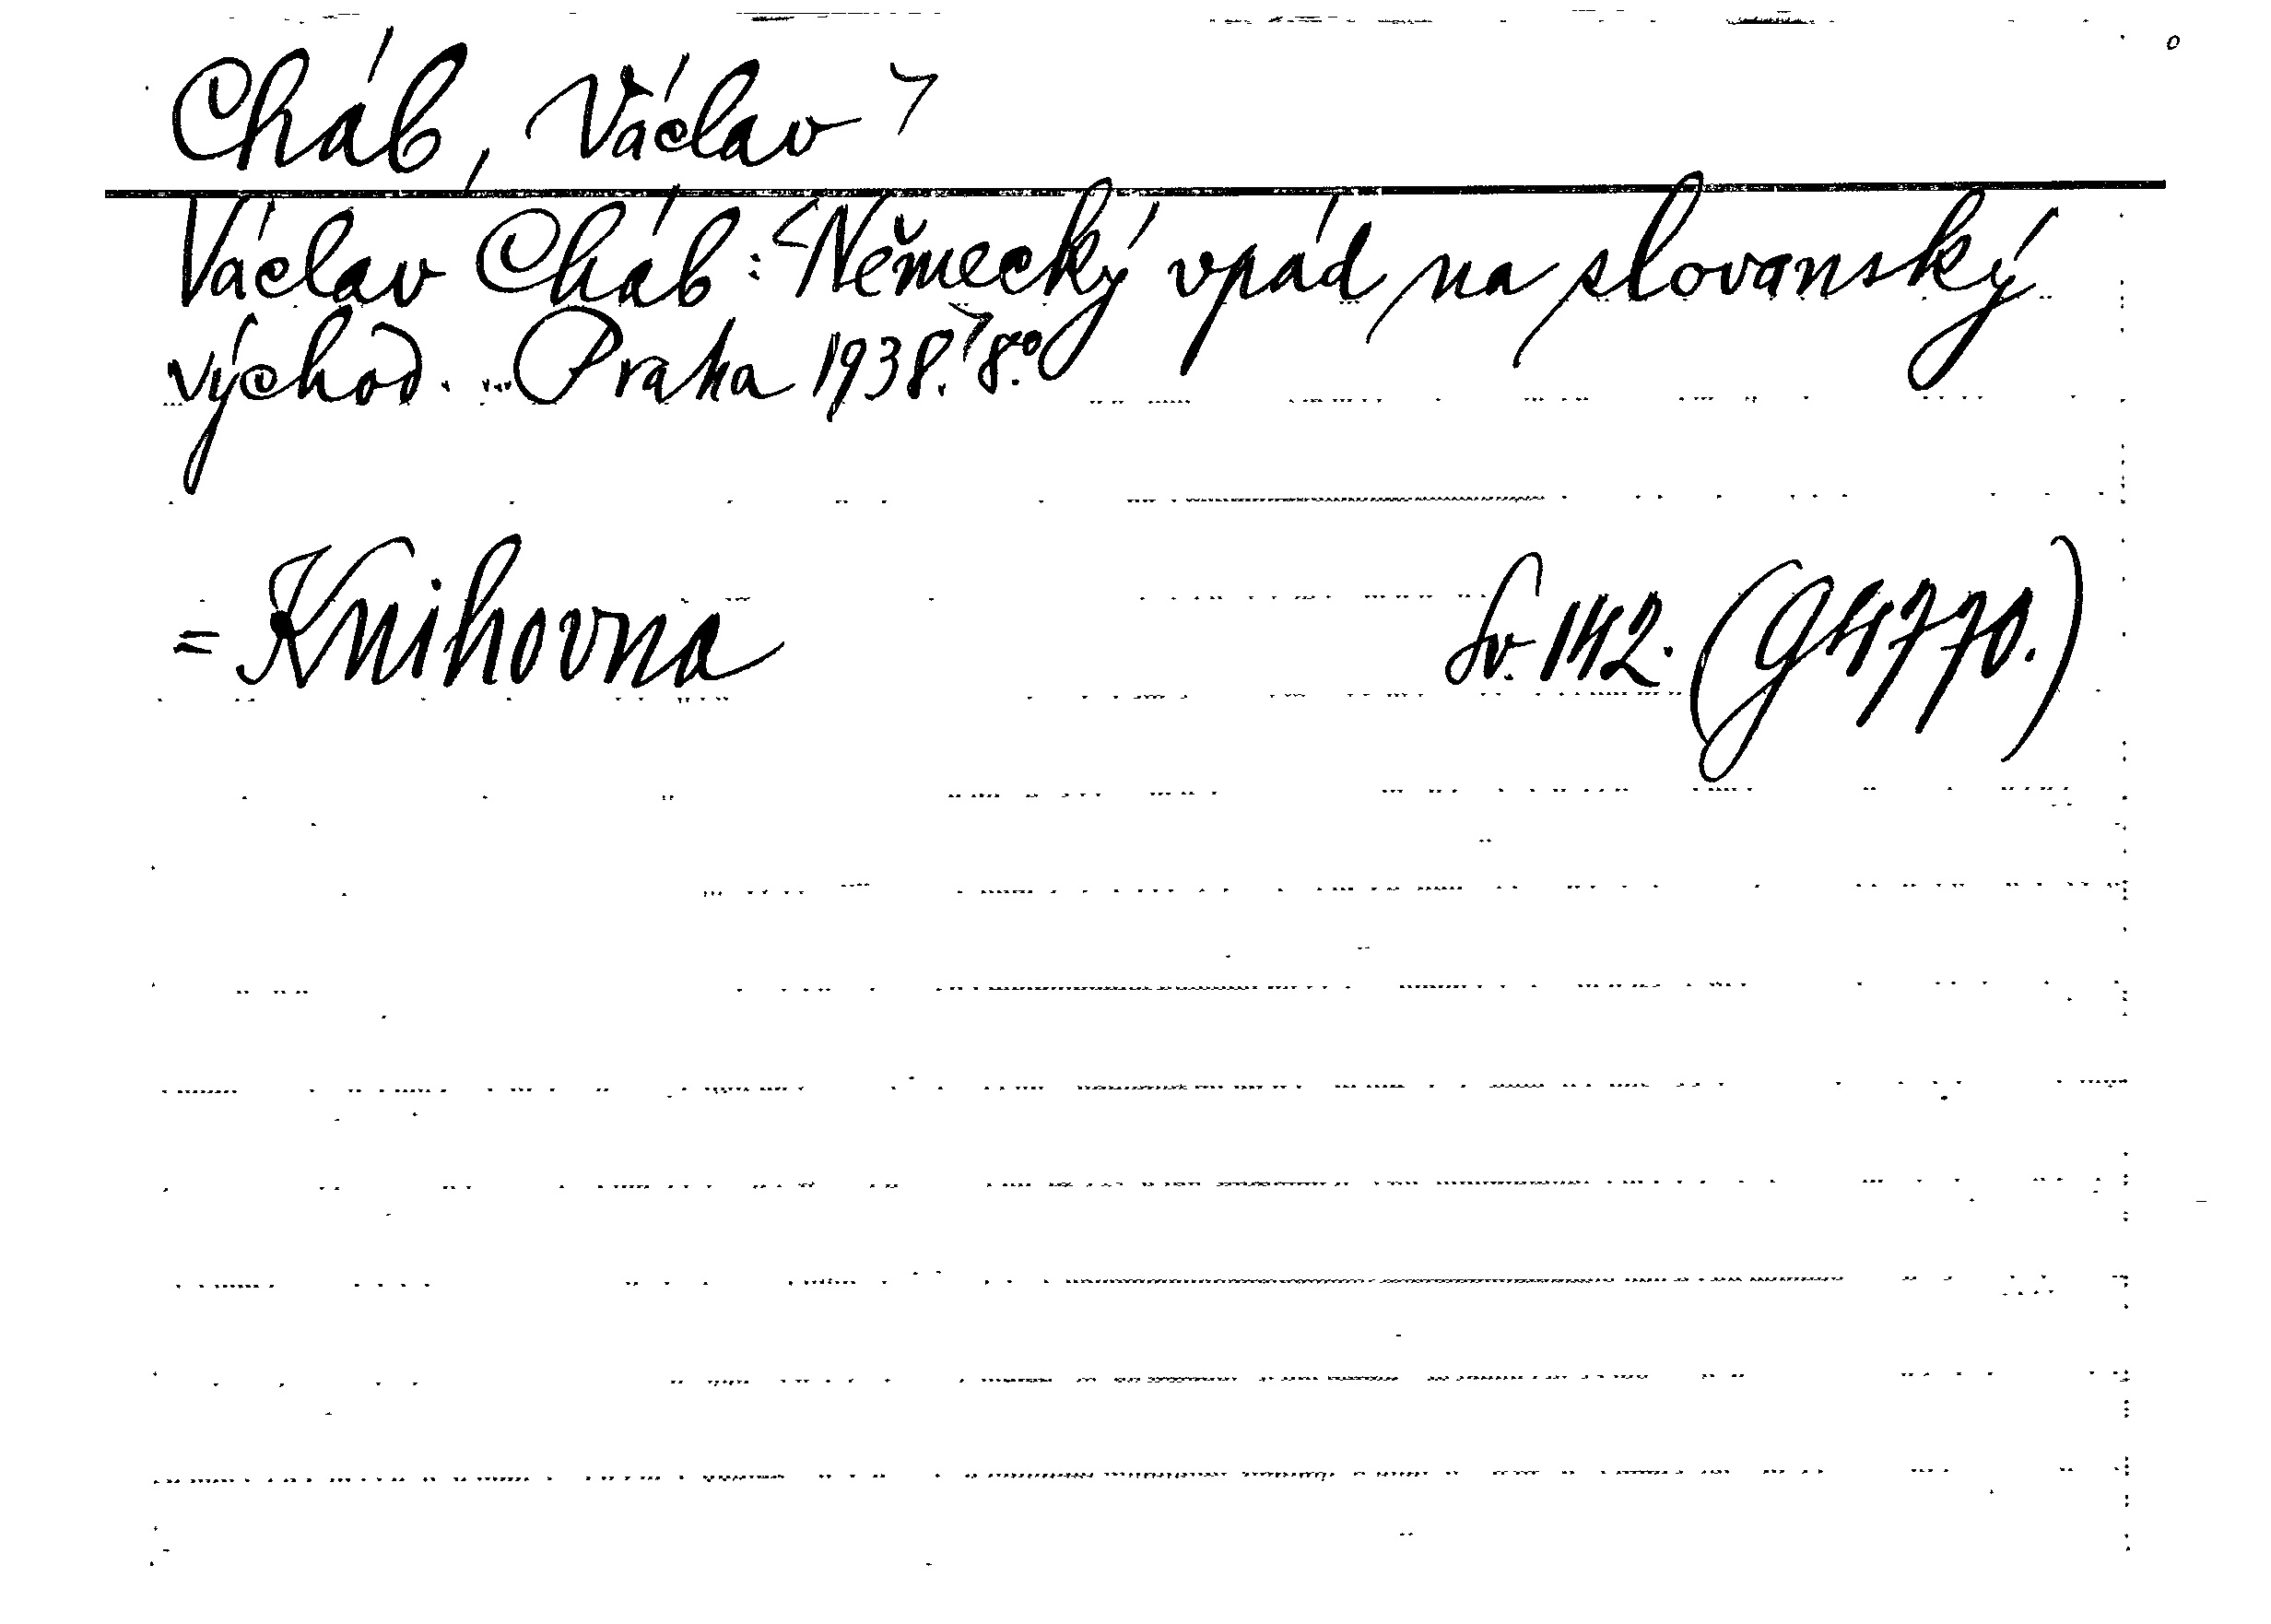 Cháb, Václav
Václav Cháb: Německý vpád na slovanský
východ. Praha 1938. 8.°
= Knihovna Sv. 142. (G 4770.)